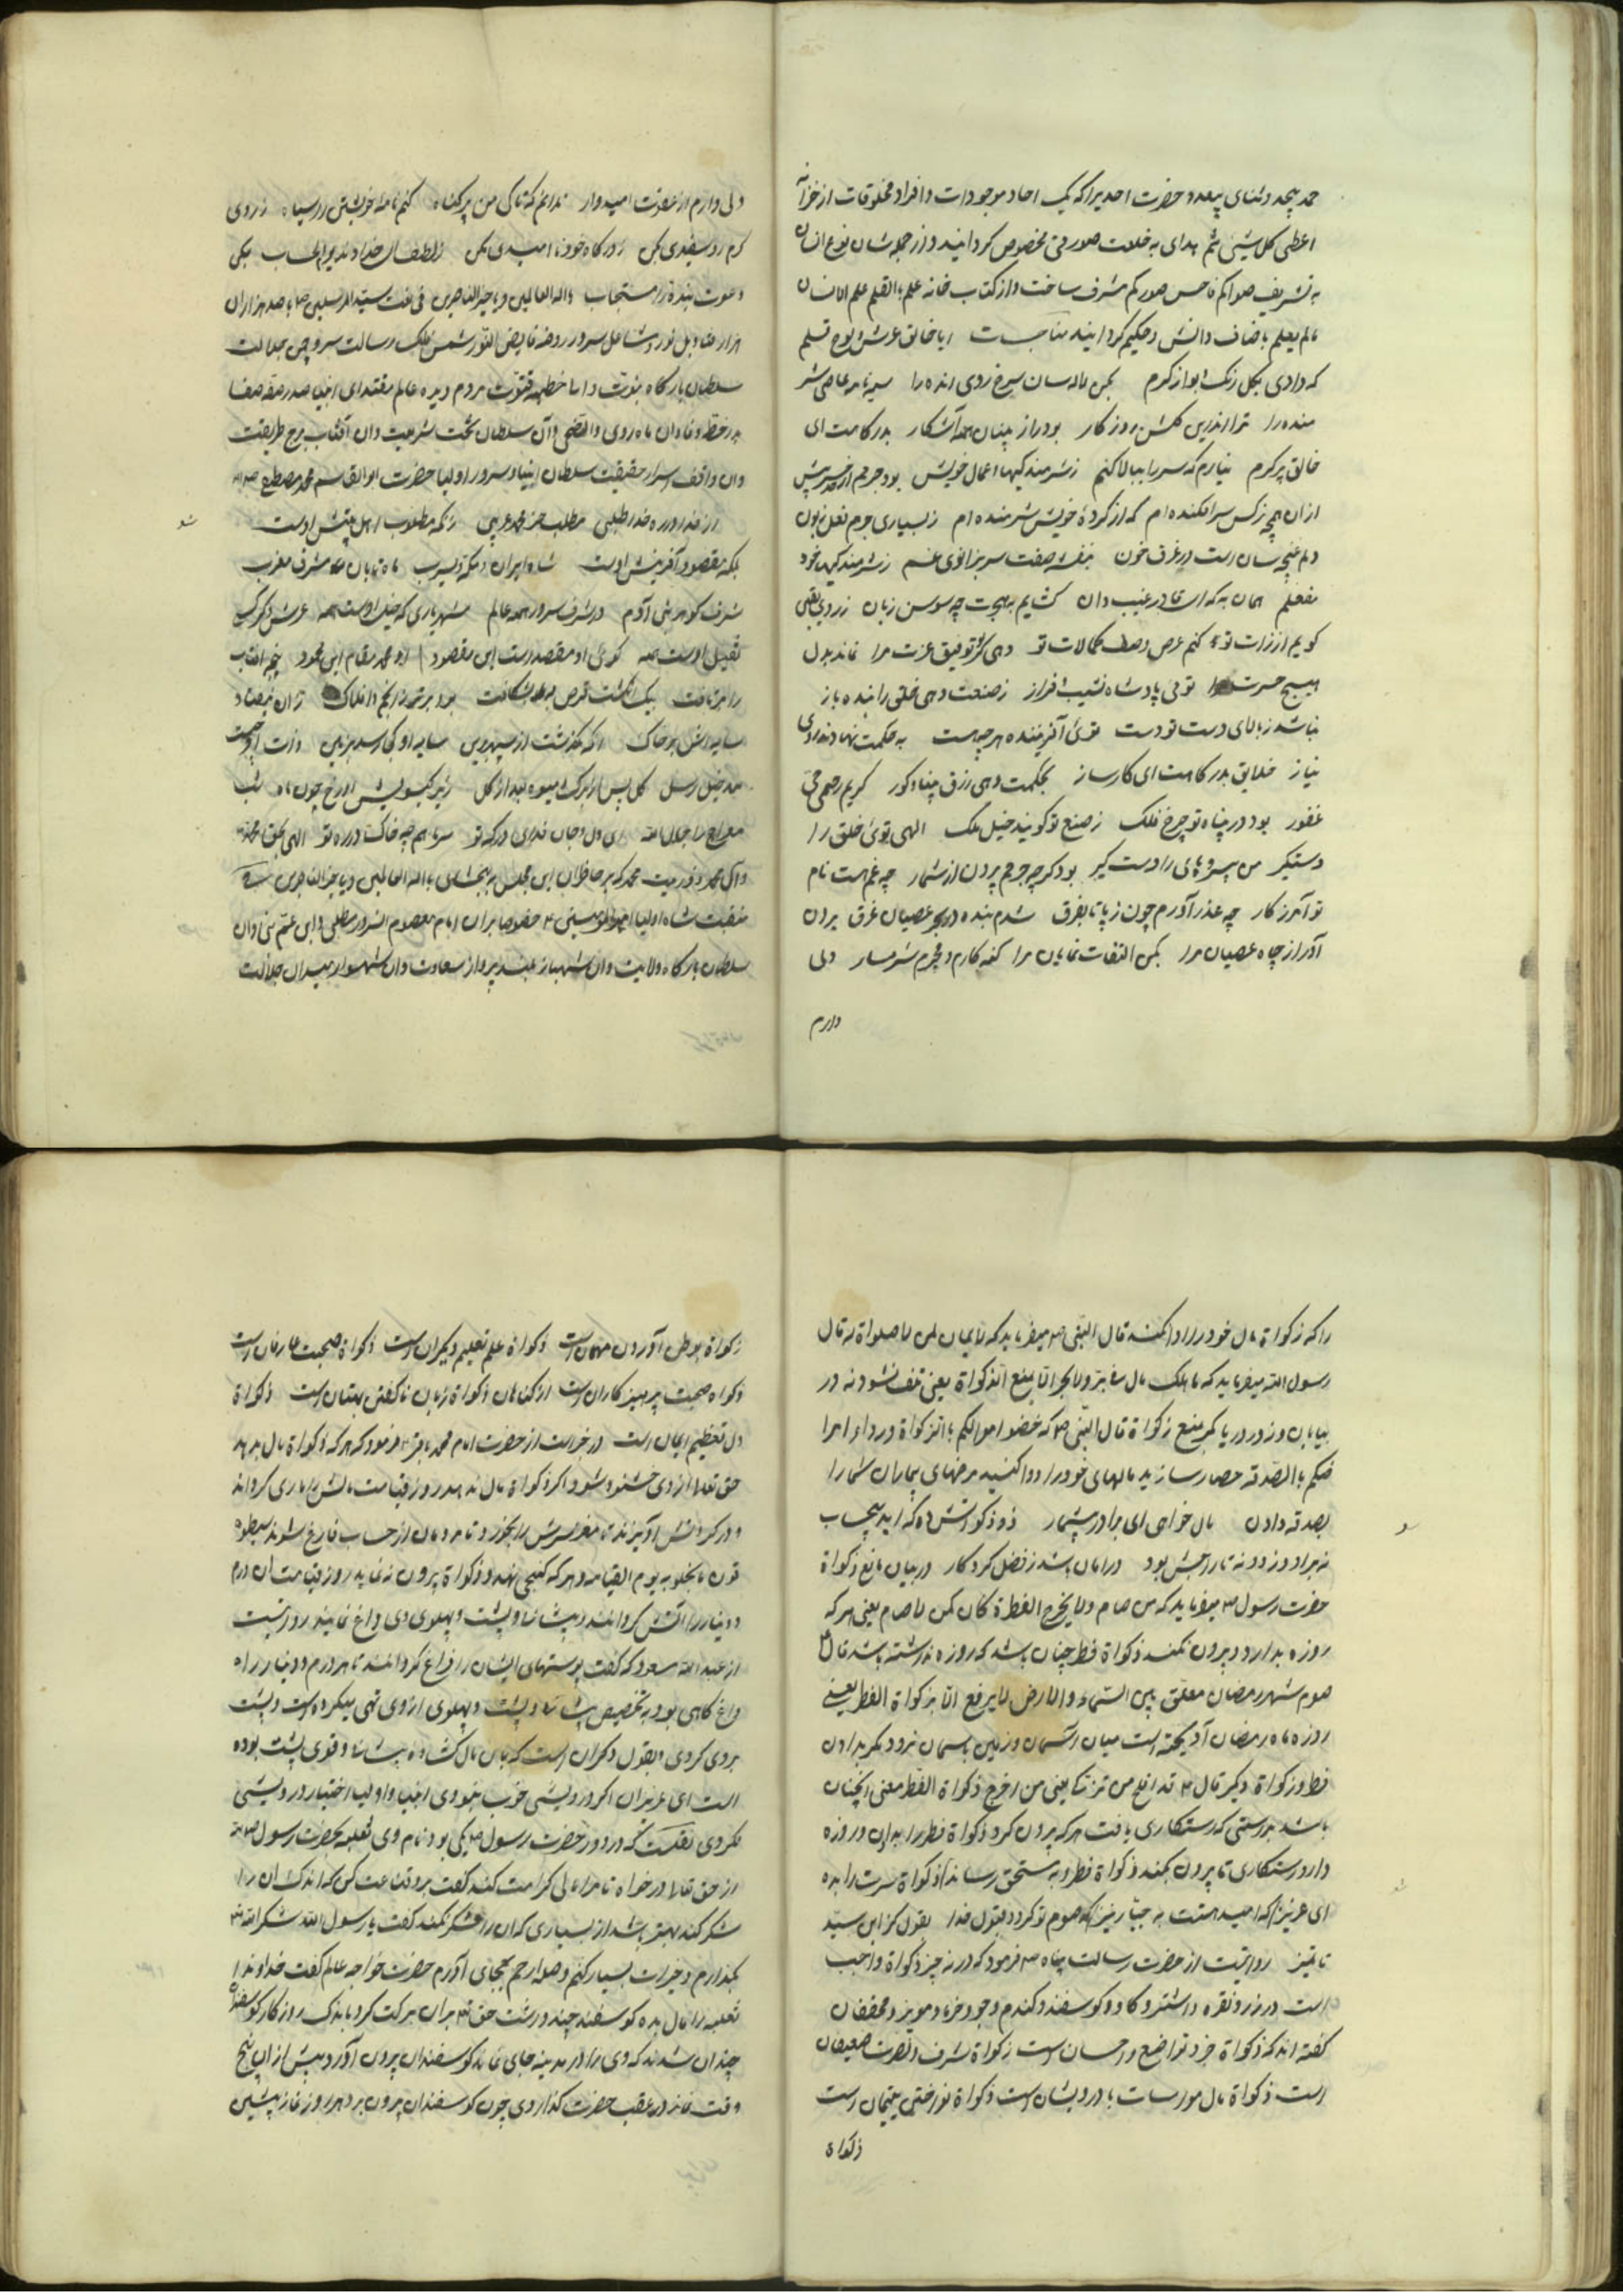 حمد بیحد و ثنای بیعدد حضرت احدیرا که یک احاد موجودات و افراد مخلوقات از خزانه
اعطی کل شیئ ثم هدای به خلعت صورتی مخصوص کردانید و از جمله شان نوع انسان
به تشریف صوّرکم فاحسن صورکم مشرف ساخت و از کتاب خانه علم بالقلم علم الانسان
مالم یعلم باضاف دانش و حکیم کردانید مناجات ایا خالق عرش و لوح و قلم
که دادی بکل رنک و بو از کرم بکن لاله سان سرخ روی بنده را سیه نامه عاصی شر
منده را ترا اندرین کلشن روزکار بود راز پنهان همه آشکار بدرکاهت ای
خالق پر کرم نیارم که سر را ببالا کنم ز شرمندکیهاء اعمال خویش بود جرمم از
از ان همچه نرکس سر افکنده ام که از کردهٔ خویش شرمنده ام ز بسیاری جرم فعل زبون
دلم غنچه سان است در غرق خون بنفشه صفت سر بزانوی غم ز شرمندکیهاء خود
منفعلم همان به که ای قادر غیب دان کشایم بمهجت چه سوسن زبان ز روی یقین
کویم از ذات تو کنم عرض وصف کمالات تو دهی کر توفیق عزت مرا نماند بدل
هیچ حسرت مرا توئی پادشاه نشیب و فراز ز صنعت دهی خلق را بنده باز
نباشد ز بالای دست تو دست توئ آفریننده هر چه هست به حکمت نها
نیاز خلایق بدرکاهت ای کارساز بحکمت دهی رزق بینا و کور کریم رحیم حی
غفور بود در پناه تو چرخ فلک ز صنع تو کویند خیل ملک الهی توئ خلق را
دستکیر من بی سر و پای را دست کیر بود کر چه جرمم برون از شمار چه غم هست نام
تو آمرزکار چه عذر آورم چون ز پا تا بفرق شدم بنده در بحر عصیان غرق برون
آور از چاه عصیان مرا بکن التفات نمایان مرا کنه کارم و مجرم شرمسار ولی
دارم
دلی دارم از مغفرت امیدوار ندانم که تا کی من پر کناه کنم نامهٔ خویش را سیاه ز روی
کرم رو سفیدی بکن ز درکاه خود نا امیدی مکن ز لطف خداوند یوم الحساب بکن
دعوت بنده را مستجاب یا اله العالمین و یا خیر الناصرین فی نعت سید المرسلین صد هزاران
هزار قنادیل نور و مشاعل سرور روضه فایض النور شمس فلک رسالت سرو چمن جلالت
سلطان بارکاه نبوت دانا خطهٔ فتوت مردم دیده عالم مقتدای انبیا صدر صفه صفا
بدر خطه وفا وان ماه روی والضحی وان سلطان تخت شریعت وان آفتاب برج طریقت
وان واقف اسرار حقیقت سلطان انبیا و سرور اولیا حضرت ابوالقاسم محمد مصطفی
مطلب جز محمد عربی زانکه مطلوب اهل بینش اوست
بلکه مقصود آفرینش اوست شاه ایران و مکه و یثرب ماه تابان مشرق مغرب
شرف کوهر بنی آدم در شرف سرور همه عالم شهریاری که خیل اوست همه عرش و کرسی
طفیل اوست همه کوئ او مقصد است این مقصود او محمد مقام این محمود پنجه آفتاب
را بر تافت بیک انکشت قرص مه بشکافت بود برتر از انجم و افلاک زان نیفتاد
سایه اش بر خاک آنکه بکذشت از سپهر برین سایه او کی رسد بزمین
کل پس از برک و میوه بعد از کل زیر کیسویش ان رخ چون ماه شب
معراج را جلال الله ای دل و جان فدای درکه تو سر ما هم چه خاک در ره تو الهی بحق محمد
وآل محمد و ذریت محمد که بر حاضران این مجلس ببخشای یا اله العالمین و یا خیر الناصرین
منقبت شاه اولیا امیر المؤمنین خصوصا بران امام معصوم السرور مطلبی و ابن عم نبی وان
سلطان بارکاه ولایت وان شهباز بلند پرواز سعادت وان شهسوار میدان جلالت
را که زکواة مال خود را ادا نکنند قال النبی ص میفرماید که لا ایمان لمن لا صلواة له قال
رسول الله میفرماید که ما هلک مال فی بر و لا بحر الا بمنع الزکواة یعنی تلف نشود نه در
بیابان و نه در دریا مکر بمنع زکواة قال النبی ص که حصنوا اموالکم بالزکواة و داووا مرا
ضکم بالصدقه حصار سازید مالهای خود را و دوا کنید مرضهای بیماران شما را
بصدقه دادن مال خواهی ای برادر بیشمار
در امان باشد ز فضل کردکار در بیان مانع زکواة
حضرت رسول ص میفرماید که من صام و لا یخرج الفطرة کان کمن لا صام یعنی هر که
روزه بدارد و برون نکند زکواة فطر چنان باشد که روزه نداشته باشد قال
صوم شهر رمضان معلق بین السماء والارض لا یرفع الا بزکواة الفطر یعنی
روزه ماه رمضان آویخته است میان آسمان و زمین باسمان نرود مکر بدادن
فطر و زکواة دیکر قال قد افلح من تزکی یعنی من اخرج زکواة الفطر معنی آنچنان
باشد بدرستی که رستکاری یافت هر که برون کرد زکواة فطر را بدان و روزه
دارد رستکاری تا برون نکند زکواة فطر و به مستحق رساند زکواة سرت را بده
ای عزیز که امید هست به جبار نیز که صوم تو کردد قبول خدا بقول کزاین سید
تا تمیز روایتست از حضرت رسالت پناه ص فرمود که در نه چیز زکواة واجب
است در زر و نقره و اشتر و کاو و کوسفند و کندم و جو و خرما و مویز و محققان
کفته اند که زکواة خرد تواضع و احسان است زکواة شرف و نصرت ضعیفان
است زکواة مال مواسات با درویشان است زکواة یتیمان است
زکواة
زکواة بوطن آوردن مهمان است زکواة علم تعلیم دیکران است زکواة صحبت عارفان است
زکواة صحبت پرهیز کاران است از کناهان زکواة زبان ناکفتن بهتان است زکواة
دل تعظیم ایمان است در خبر است از حضرت امام محمد باقر فرمود که هر که زکواة مال بدهد
حق تعالا از وی خشنود شود و اکر زکواة مال ندهد روز قیامت مالش را ماری کرداند
و در کردنش آویزند تا مغز سرش را بخورد و تا مردمان از حساب فارغ شوند سیطو
قون ما بخلوا به یوم القیامه و هر که کنجی نهد و زکواة برون ننماید روز قیامت ان درم
و دینار را آتش کردانند و پیشانی و پشت و پهلوی وی داغ نمایند روایتست
از عبدالله مسعود که کفت پوستهای ایشان را فراغ کردانند تا هر درم و دینار را
داغ کاهی بود به تخصیص پیشانی و پشت و پهلوی از وی تهی میکرده است و پشت
بروی کردی القول دکران است که باین مال کشاده پیشانی و قوی پشت بوده
است ای عزیزان اکر درویشی خوب نبودی انبیا و اولیا اختیار درویشی
نکردی نقلست که در دور حضرت رسول ص یکی بود نام وی ثعلبه بحضرت رسول ص کفت
از حق تعالا در خواه تا مرا مالی کرامت کند کفت برو قناعت کن که اندک ان را
شکر کند بهتر باشد از بسیاری که ان را شکر نکند کفت یا رسول الله شکر الله
بکذارم و خیرات بسیار کنم وصله رحم بجای آورم حضرت خواجه عالم کفت خداوندا
ثعلبه را مال بده کوسفند چند داشت حق تع بران برکت کرد باندک روزکار کوسفندان
چندان شدند که وی را در مدینه جای نماند کوسفندان برون آورد و پیش از ان پنج
وقت نماز در عقب حضرت کذاردی چون کوسفندان برون برد هر روز نماز پیشین